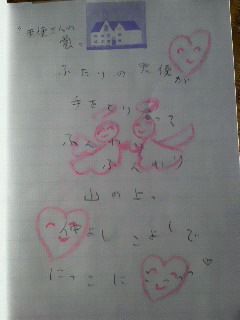 "天使さんの
歌。
ふたりの天使が
手をとりあって
ふんわり
ふんわり
山の上。
仲よしこよしで
にっこにこっ